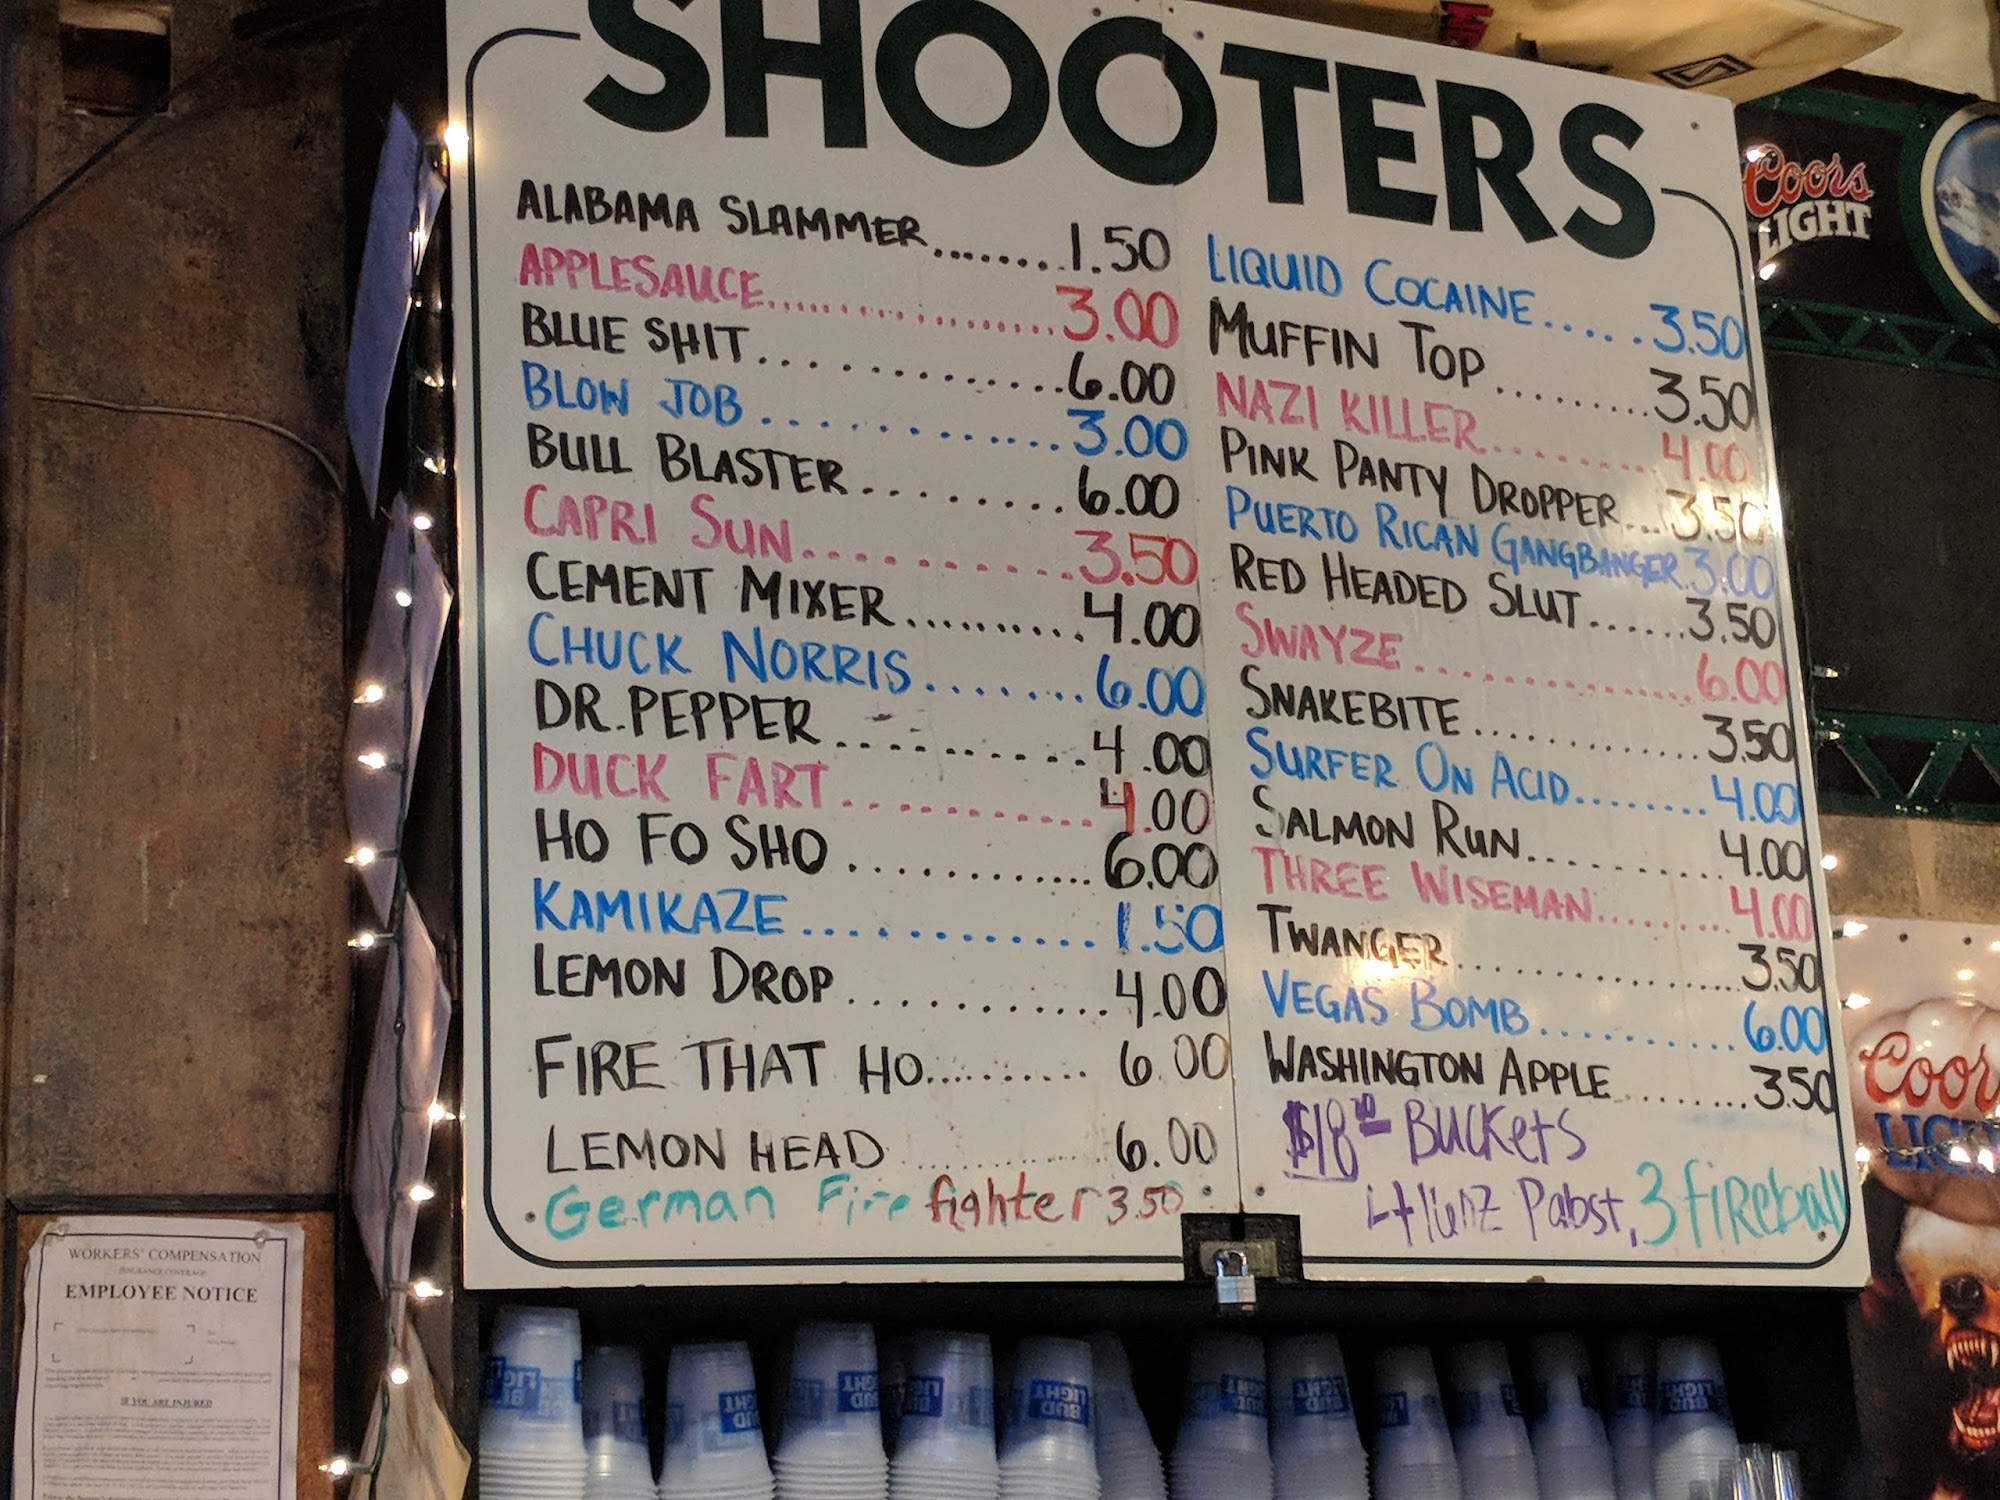 SHOOTERS
ALABAMA SLAMMER........1.50
APPLESAUCE....................3.00
BLUE SHIT..............6.00
BLOW JOB.............3.00
BULL BLASTER.........6.00
CAPRI SUN............3.50
CEMENT MIXER..........4.00
CHUCK NORRIS.......6.00
DR. PEPPER..........4.00
DUCK FART...........4.00
HO FO SHO............6.00
KAMIKAZE.............1.50
LEMON DROP..........4.00
FIRE THAT HO..........6.00
LEMON HEAD..............6.00
German Fire fighter 3.50
LIQUID COCAINE......3.50
MUFFIN TOP.........3.50
NAZI KILLER.........4.00
PINK PANTY DROPPER...3.50
PUERTO RICAN GANGBANGER.3.00
RED HEADED SLUT......3.50
SWAYZE..............6.00
SNAKEBITE............3.50
SURFER ON ACID........4.00
SALMON RUN.........4.00
THREE WISEMAN.......4.00
TWANGER.............3.50
VEGAS BOMB..........6.00
WASHINGTON APPLE........3.50
$18 Buckets
Pabst, 3 fireball
Coors
LIGHT
Coors
LIGHT
WORKERS' COMPENSATION
INSURANCE COVERAGE
EMPLOYEE NOTICE
IF YOU ARE INJURED
BUD
LIGHT
BUD
LIGHT
BUD
LIGHT
BUD
LIGHT